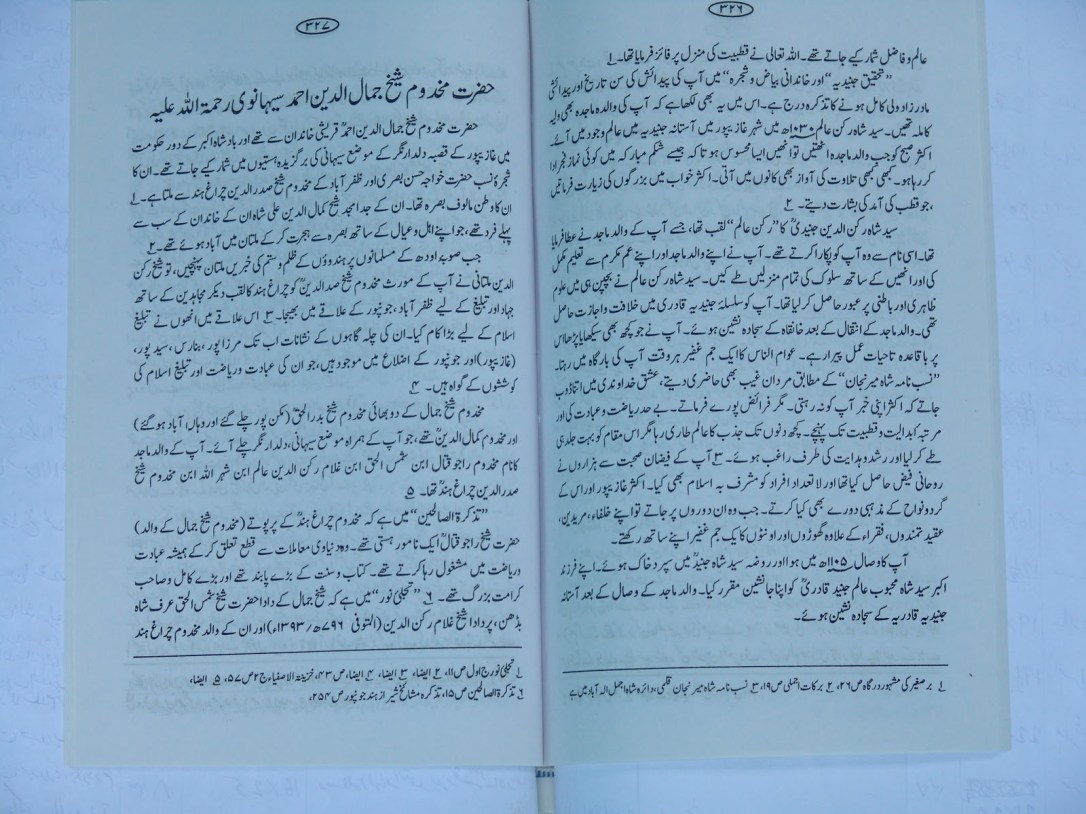 ۳۲۶
عالم و فاضل شمار کیے جاتے تھے۔ اللہ تعالیٰ نے قطبیت کی منزل پر فائز فرمایا تھا۔ ۱
”تحقیق جنیدیہ“ اور خاندانی بیاض و شجرہ“ میں آپ کی پیدائش کی سن تاریخ اور پیدائشی
مادر زاد ولی کامل ہونے کا تذکرہ درج ہے۔ اس میں یہ بھی لکھا ہے کہ آپ کی والدہ ماجدہ بھی ولیہ
کاملہ تھیں۔ سید شاہ رکن عالم ۱۰۳۰ھ میں شہر غازیپور میں آستانہ جنیدیہ میں عالم وجود میں آئے۔
اکثر صبح کو جب والدہ ماجدہ اٹھتیں تو انھیں ایسا محسوس ہوتا کہ جیسے شکم مبارک میں کوئی نماز فجر ادا
کر رہا ہو۔ کبھی کبھی تلاوت کی آواز بھی کانوں میں آتی۔ اکثر خواب میں بزرگوں کی زیارت فرماتیں
، جو قطب کی آمد کی بشارت دیتے۔ ۲
سید شاہ رکن الدین جنیدیؒ کا ”رکن عالم“ لقب تھا، جسے آپ کے والد ماجد نے عطا فرمایا
تھا۔ اسی نام سے وہ آپ کو پکارا کرتے تھے۔ آپ نے اپنے والد ماجد اور اپنے عم مکرم سے تعلیم مکمل
کی اور انھیں کے ساتھ سلوک کی تمام منزلیں طے کیں۔ سید شاہ رکن عالم نے بچپن ہی میں علوم
ظاہری اور باطنی پر عبور حاصل کر لیا تھا۔ آپ کو سلسلۂ جنیدیہ قادری میں خلافت و اجازت حاصل
تھی۔ والد ماجد کے انتقال کے بعد خانقاہ کے سجادہ نشین ہوئے۔ آپ نے جو کچھ بھی سیکھا یا پڑھا اس
پر باقاعدہ تاحیات عمل پیرا رہے۔ عوام الناس کا ایک جم غفیر ہر وقت آپ کی بارگاہ میں رہتا۔
”نسب نامہ شاہ میر نجان“ کے مطابق مردان غیب بھی حاضری دیتے، عشق خداوندی میں اتنا ڈوب
جاتے کہ اکثر اپنی خبر آپ کو نہ رہتی۔ مگر فرائض پورے فرماتے۔ بے حد ریاضت و عبادت کی اور
مرتبۂ ابدالیت و قطبیت تک پہنچے۔ کچھ دنوں تک جذب کا عالم طاری رہا مگر اس مقام کو بہت جلد ہی
طے کر لیا اور رشد و ہدایت کی طرف راغب ہوئے۔ ۳ آپ کے فیضان صحبت سے ہزاروں نے
روحانی فیض حاصل کیا تھا اور لا تعداد افراد کو مشرف بہ اسلام بھی کیا۔ اکثر غازیپور اور اس کے
گرد و نواح کے مذہبی دورے بھی کیا کرتے۔ جب وہ ان دوروں پر جاتے تو اپنے خلفاء، مریدین،
عقیدتمندوں، فقراء کے علاوہ گھوڑوں اور اونٹوں کا یک جم غفیر اپنے ساتھ رکھتے۔
آپ کا وصال ۱۱۰۵ھ میں ہوا اور روضہ سید شاہ جنیدؒ میں سپرد خاک ہوئے۔ اپنے فرزند
اکبر سید شاہ محبوب عالم جنید قادریؒ کو اپنا جانشین مقرر کیا۔ والد ماجد کے وصال کے بعد آستانہ
جنیدیہ قادریہ کے سجادہ نشین ہوئے۔
۱ برصغیر کی مشہور درگاہ ص ۲۶، ۲ برکات اجملی ص ۱۹، ۳ نسب نامہ شاہ میر نجان قلمی، دائرہ شاہ اجمل الہ آباد میں ہے
۳۲۷
حضرت مخدوم شیخ جمال الدین احمد سیہانوی رحمۃ اللہ علیہ
حضرت مخدوم شیخ جمال الدین احمدؒ قریشی خاندان سے تھے اور بادشاہ اکبر کے دور حکومت
میں غازیپور کے قصبہ دلدار نگر کے موضع سیہانی کی برگزیدہ ہستیوں میں شمار کیے جاتے تھے۔ ان کا
شجرۂ نسب حضرت خواجہ حسن بصری اور ظفر آباد کے مخدوم شیخ صدر الدین چراغ ہند سے ملتا ہے۔ ۱
ان کا وطن مالوف بصرہ تھا۔ ان کے جد امجد شیخ کمال الدین علی شاہ ان کے خاندان کے سب سے
پہلے فرد تھے، جو اپنے اہل و عیال کے ساتھ بصرہ سے ہجرت کر کے ملتان میں آباد ہوئے تھے۔ ۲
جب صوبہ اودھ کے مسلمانوں پر ہندوؤں کے ظلم و ستم کی خبریں ملتان پہنچیں، تو شیخ رکن
الدین ملتانی نے آپ کے مورث مخدوم شیخ صدر الدینؒ کو چراغ ہند کا لقب دیکر مجاہدین کے ساتھ
جہاد اور تبلیغ کے لیے ظفر آباد، جونپور کے علاقے میں بھیجا۔ ۳ اس علاقے میں انھوں نے تبلیغ
اسلام کے لیے بڑا کام کیا۔ ان کی چلہ گاہوں کے نشانات اب تک مرزا پور، بنارس، سید پور،
(غازیپور) اور جونپور کے اضلاع میں موجود ہیں، جو ان کی عبادت و ریاضت اور تبلیغ اسلام کی
کوششوں کے گواہ ہیں۔ ۴
مخدوم شیخ جمال کے دو بھائی مخدوم شیخ بدر الحقؒ (مکن پور چلے گئے اور وہاں آباد ہو گئے)
اور مخدوم کمال الدینؒ تھے، جو آپ کے ہمراہ موضع سیہانی، دلدار نگر چلے آئے۔ آپ کے والد ماجد
کا نام مخدوم راجو قتال ابن شمس الحق ابن غلام رکن الدین عالم ابن شہر اللہ ابن مخدوم شیخ
صدر الدین چراغ ہندؒ تھا۔ ۵
”تذکرۃ الصالحین“ میں ہے کہ مخدوم چراغ ہندؒ کے پرپوتے (مخدوم شیخ جمال کے والد)
حضرت شیخ راجو قتالؒ ایک نامور ہستی تھے۔ وہ دنیاوی معاملات سے قطع تعلق کر کے ہمیشہ عبادت
و ریاضت میں مشغول رہا کرتے تھے۔ کتاب و سنت کے بڑے پابند تھے اور بڑے کامل و صاحب
کرامت بزرگ تھے۔ ۶ ”تجلی نور“ میں ہے کہ شیخ جمال کے دادا حضرت شیخ شمس الحق عرف شاہ
بڈھن، پردادا شیخ غلام رکن الدین (المتوفی ۷۹۶ھ/۱۳۹۳ء) اور ان کے والد مخدوم چراغ ہند
۱ تجلی نور ج اول ص ۱۱، ۲ ایضا، ۳ ایضا، ۴ ایضا، ص ۴۳، خزینۃ الاصفیاء ج ۲ ص ۵۷، ۵ ایضا،
۶ تذکرۃ الصالحین ص ۱۵، تذکرہ مشائخ شیراز ہند جونپور ص ۲۵۴،